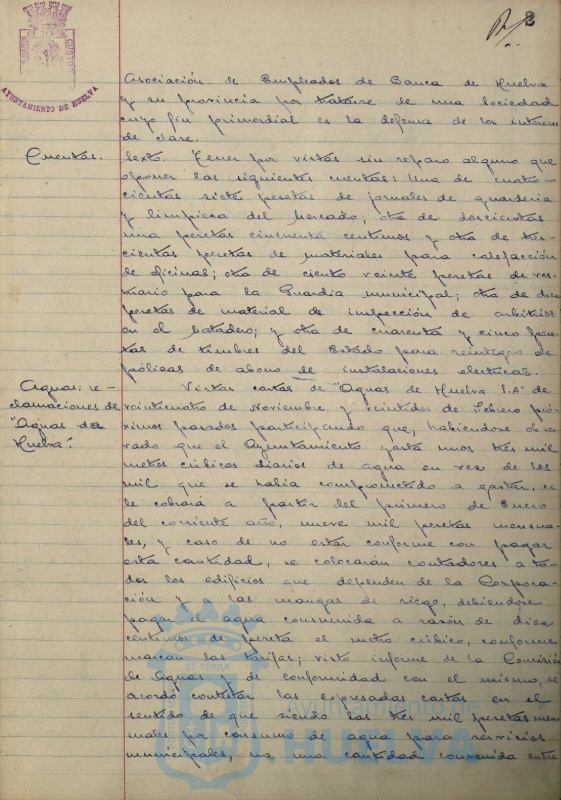 2
AYUNTAMIENTO DE HUELVA
Asociación de Empleados de Banca de Huelva
y su provincia por tratarse de una Sociedad
cuyo fin primordial es la defensa de los intereses
de clase.
Cuentas.
Sexto. Tener por vistas sin reparo alguno que
oponer las siguientes cuentas: Una de cuatro-
cientas siete pesetas de jornales de guarderia
y limpieza del Mercado; otra de doscientas
una pesetas cincuenta centimos y otra de tres-
cientas pesetas de materiales para calefacción
de oficinas; otra de ciento veinte pesetas de ves-
tuario para la Guardia municipal; otra de diez
pesetas de material de inspección de arbitrios
en el Matadero; y otra de cuarenta y cinco pese-
tas de timbres del Estado para reintegro de
pólizas de abono de instalaciones electricas.
Aguas: re-
clamaciones de
"Aguas de
Huelva".
Vistas cartas de "Aguas de Huelva S.A" de
veinticuatro de Noviembre y veintidos de Febrero pró-
ximos pasados participando que, habiendose obser-
vado que el Ayuntamiento gasta unos tres mil
metros cúbicos diarios de agua en vez de los
mil que se habia comprometido a gastar, se
le cobrará a partir del primero de Enero
del corriente año, nueve mil pesetas mensua-
les, y caso de no estar conforme con pagar
esta cantidad, se colocarán contadores a to-
dos los edificios que dependen de la Corpora-
ción y a las mangas de riego, debiendose
pagar el agua consumida a razón de diez
centimos de peseta el metro cúbico, conforme
marcan las tarifas; visto informe de la Comisión
de Aguas y de conformidad con el mismo, se
acordó contestar las expresadas cartas en el
sentido de que siendo las tres mil pesetas men-
suales por consumo de agua para servicios
municipales, no una cantidad convenida entre
Ayuntamiento de
HUELVA